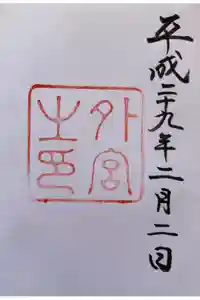 平成二十九年二月二日
外宮
之印